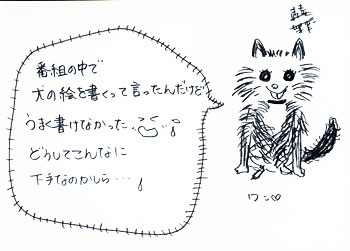 番組の中で
犬の絵を書くって言ったんだけど
うまく書けなかった…
どうしてこんなに
下手なのかしら…
ワン♡